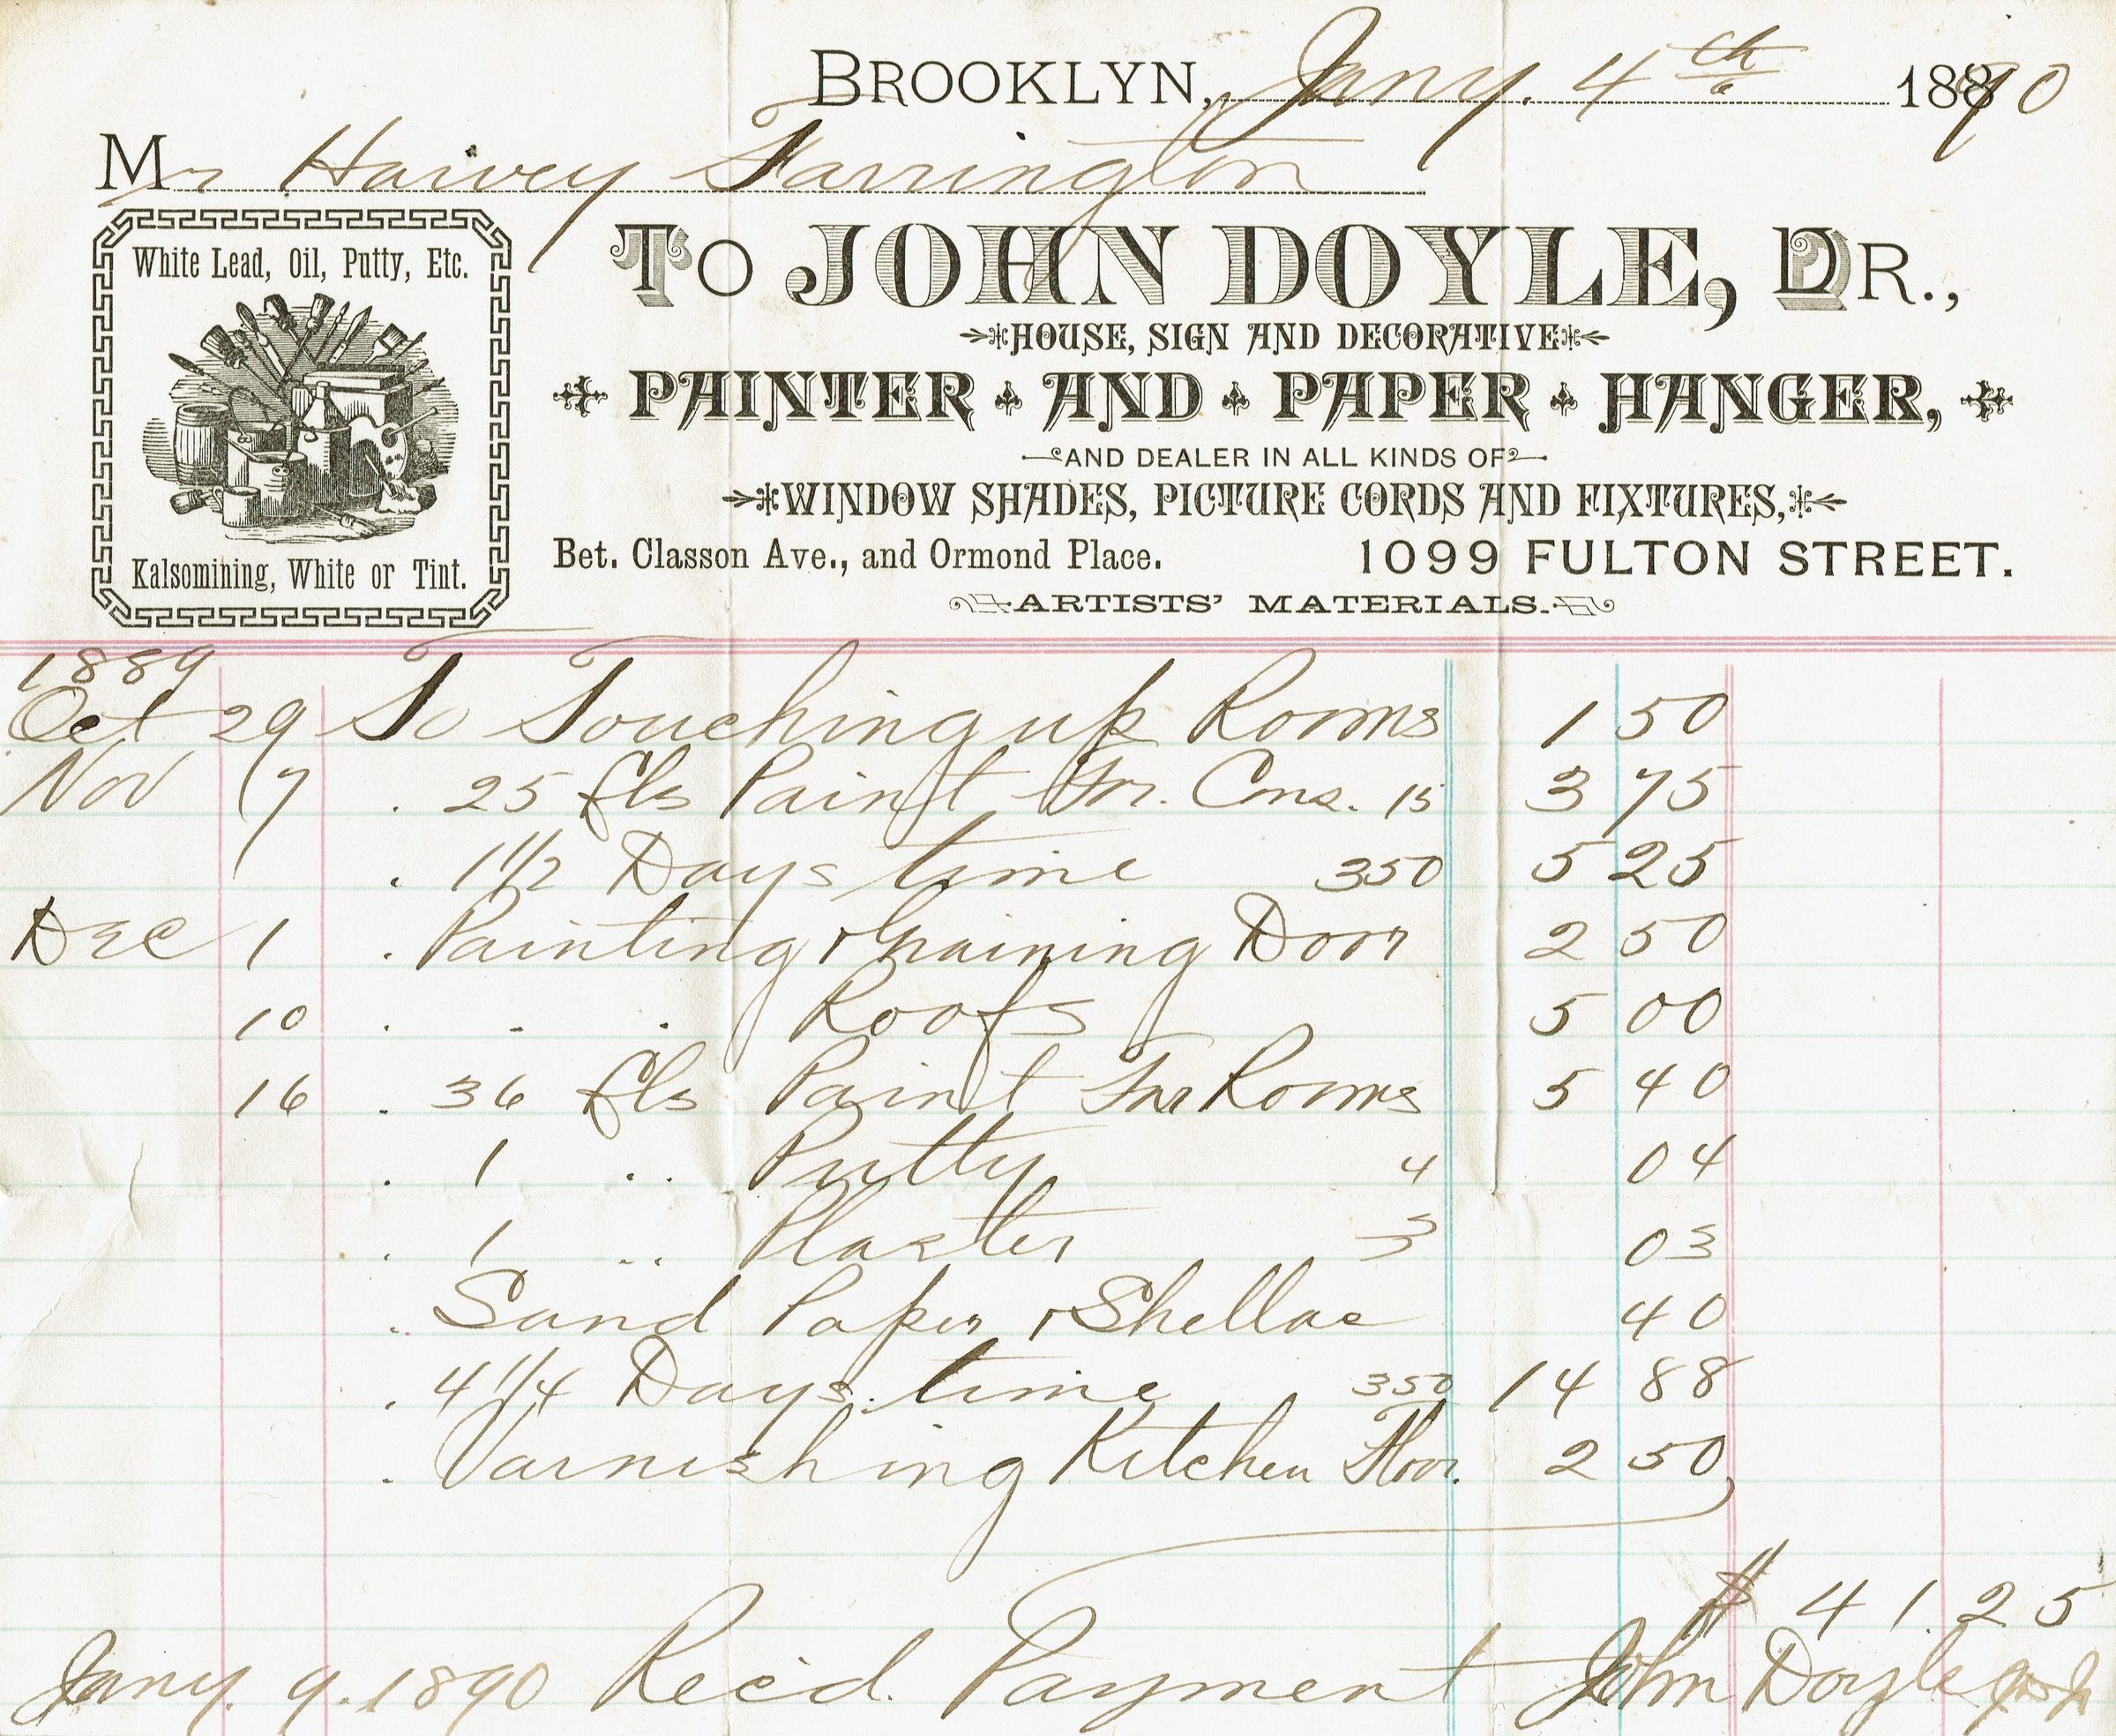 BROOKLYN, Jany. 4th 1890
Mr Harvey Farrington
White Lead, Oil, Putty, Etc.
Kalsomining, White or Tint.
To JOHN DOYLE, DR.,
HOUSE, SIGN AND DECORATIVE
PAINTER AND PAPER HANGER,
AND DEALER IN ALL KINDS OF
WINDOW SHADES, PICTURE CORDS AND FIXTURES,
Bet. Classon Ave., and Ormond Place. 1099 FULTON STREET.
ARTISTS' MATERIALS.
1889
Oct 29 To Touching up Rooms 1 50
Nov 7 . 25 lbs Paint For. 15 3 75
. 1 1/2 Days time 350 5 25
Dec 1 . Painting & Graining Door 2 50
10 . . . Roofs 5 00
16 . 36 lbs Paint For Rooms 5 40
. 1 .. Putty 4 04
. 1 .. Plaster 3 03
. Sand Paper & Shellac 40
. 4 1/4 Days time 350 14 88
. Varnishing Kitchen Floor. 2 50
$ 41.25
Jany. 9. 1890 Rec'd. Payment John Doyle